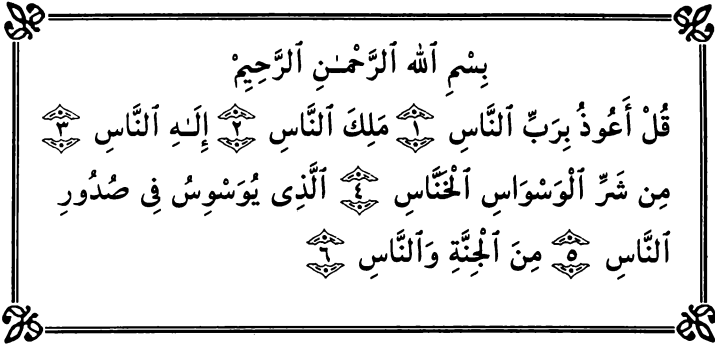 بِسْمِ ٱللهِ ٱلرَّحْمَـٰنِ ٱلرَّحِيمْ
قُلْ أَعُوذُ بِرَبِّ ٱلنَّاسِ ١ مَلِكَ ٱلنَّاسِ ٢ إِلَـٰهِ ٱلنَّاسِ ٣
مِن شَرِّ ٱلْوَسْوَاسِ ٱلْخَنَّاسِ ٤ ٱلَّذِى يُوَسْوِسُ فِى صُدُورِ
ٱلنَّاسِ ٥ مِنَ ٱلْجِنَّةِ وَٱلنَّاسِ ٦